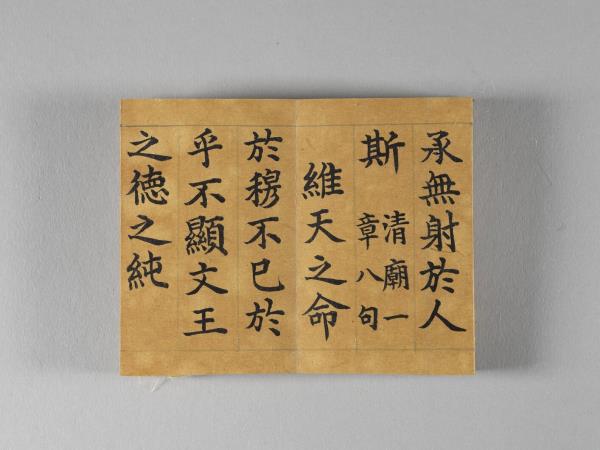 承無射於人
斯 清廟一
章八句
維天之命
於穆不已於
乎不顯文王
之德之純